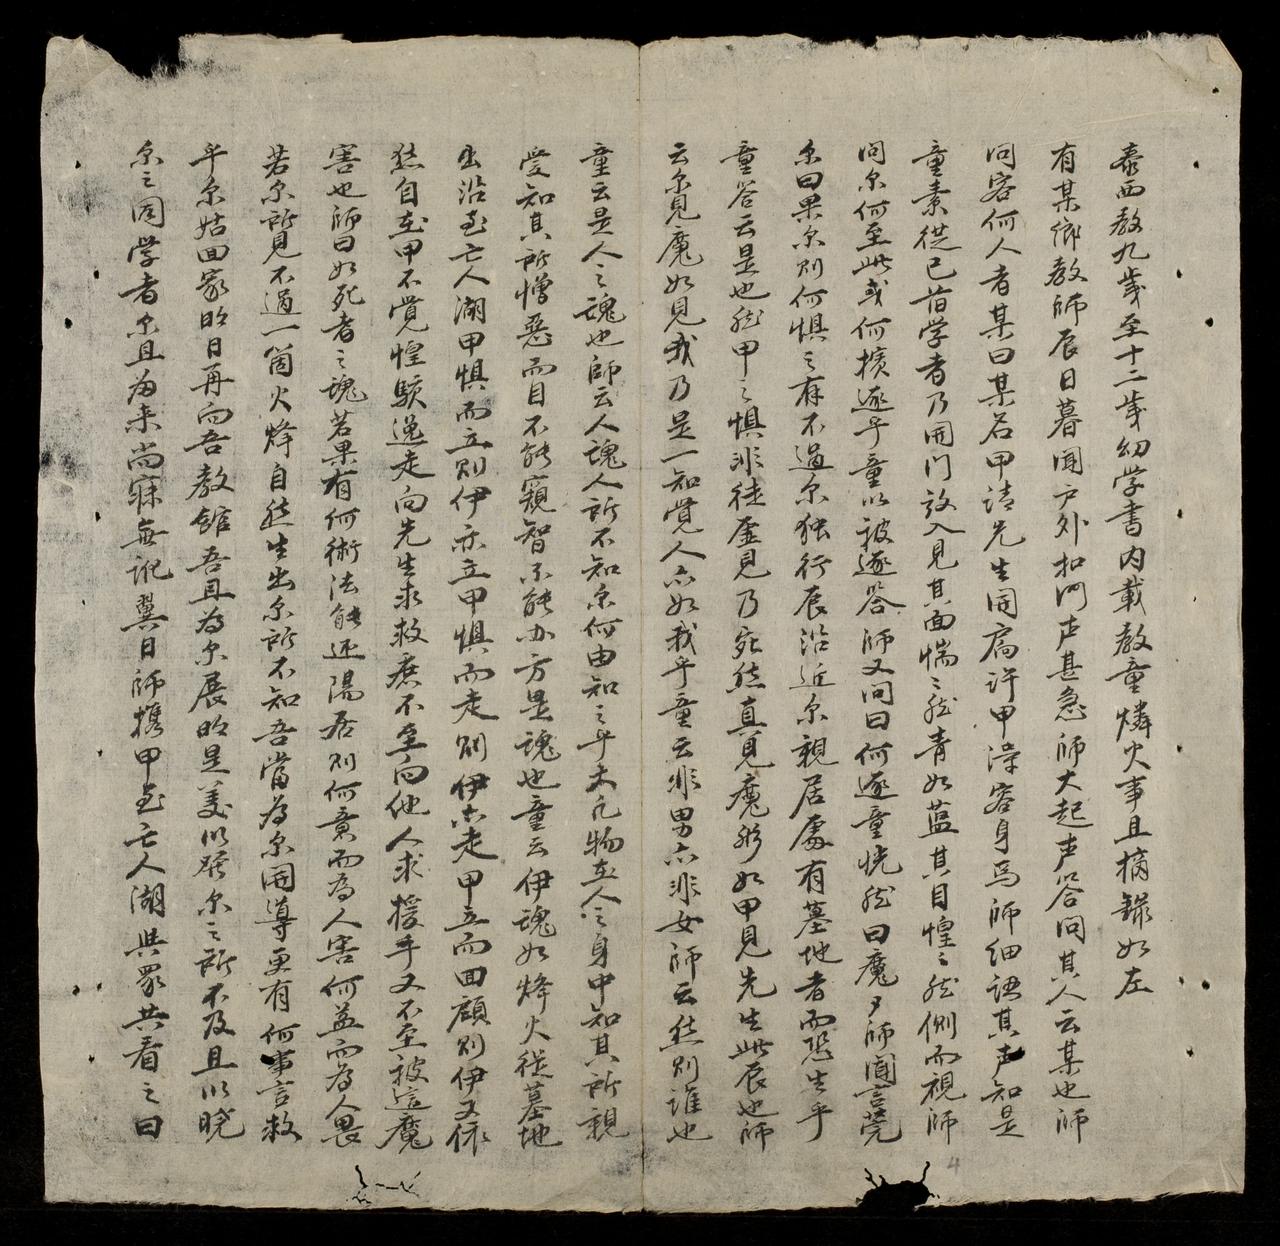 泰西教九歲至十二歲幼学書内載教童燐火事且摘錄如左
有某鄉教師辰日暮闻户外扣门声甚急師大起声答问其人云某也師
问客何人者某曰某名甲请先生闭扃许甲得容身焉師细認其声知是
童素從已苗学者乃闭门放入見其面惴〻然青如蓝其目惶〻然侧而視師
问尔何至此或何擯逐乎童以被逐答師又问曰何逐童恍然曰魔夕師闻言莞
尔曰果尔则何惧之有不過尔独行辰沿近尔親居處有墓地者而恐生乎
童答云是也然甲之惧非徒虚見乃宛然真見魔形如甲見先生此辰也師
云尔見魔如見我乃是一知觉人亦如我乎童云非男亦非女師云然则谁也
童云是人之魂也師云人魂人所不知尔何由知之乎夫凡物在人之身中知其所親
受知其所憎惡而目不能窺智不能办方是魂也童云伊魂如烽火從墓地
出沿至亡人湖甲惧而立则伊亦立甲惧而走则伊亦走甲立而回顧则伊又依
然自在甲不觉惶駭逸走向先生求救庶不至向他人求援乎又不至被這魔
害也師曰如死者之魂若果有何術法能还陽居则何意而為人害何益而為人畏
若尔所見不過一箇火烽自然生出尔所不知吾當為尔闭導更有何事言救
乎尔姑回家明日再向吾教館吾且為尔展明是美以啓尔之所不及且以晓
尔之同学者尔且為来尚寐無訛翼日師携甲至亡人湖與眾共看之曰